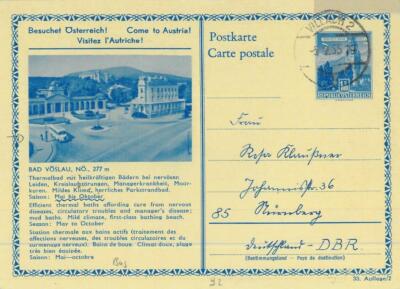 Besuchet Österreich! Come to Austria!
Visitez l'Autriche!
BAD VÖSLAU, NÖ., 277 m
Thermalbad mit heilkräftigen Bädern bei nervösen
Leiden, Kreislaufstörungen, Managerkrankheit, Moor-
kuren. Mildes Klima, herrliches Parkstrandbad.
Saison: Mai bis Oktober
Efficient thermal baths affording cure from nervous
diseases, circulatory troubles and manager's disease;
mud baths. Mild climate, first-class bathing beach.
Season: May to October
Station thermale aux bains actifs (traitement des
affections nerveuses, des troubles circulatoires et du
surmenage nerveux). Bains de boue. Climat doux, plage
très bien équipée.
Saison: Mai—octobre
Postkarte
Carte postale
VILLACH 2
REPUBLIK ÖSTERREICH
Frau
Rosa Klaußner
Johannisstr. 36
85 Nürnberg
Deutschland - DBR
(Bestimmungsland - Pays de destination)